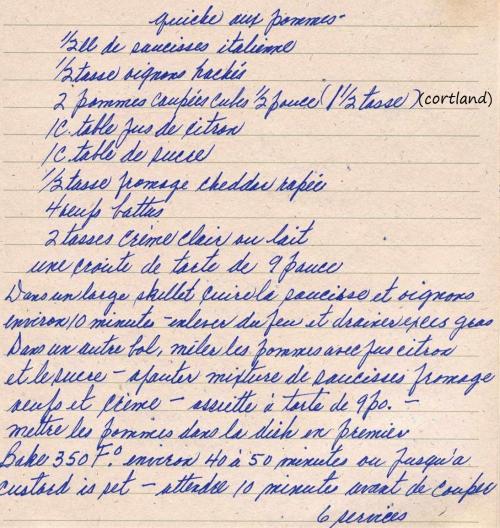 Quiche aux pommes -
1/2 lb de saucisses italienne
1/2 tasse oignons hachés
2 pommes coupées cubes 1/2 pouce (1 1/2 tasse) (cortland)
1 C. table jus de citron
1 C. table de sucre
1/2 tasse fromage cheddar rapée
4 oeufs battus
2 tasses crème clair ou lait
une croute de tarte de 9 pouce
Dans un large skillet cuire la saucisse et oignons
environ 10 minutes - enlever du feu et drainer exces gras
Dans un autre bol, mêler les pommes avec jus citron
et le sucre - ajouter mixture de saucisses fromage
oeufs et crème - assiette à tarte de 9 po. -
mettre les pommes dans la dish en premier
Bake 350 F.° environ 40 à 50 minutes ou jusqu'a
custard is set - attendre 10 minutes avant de couper
6 services